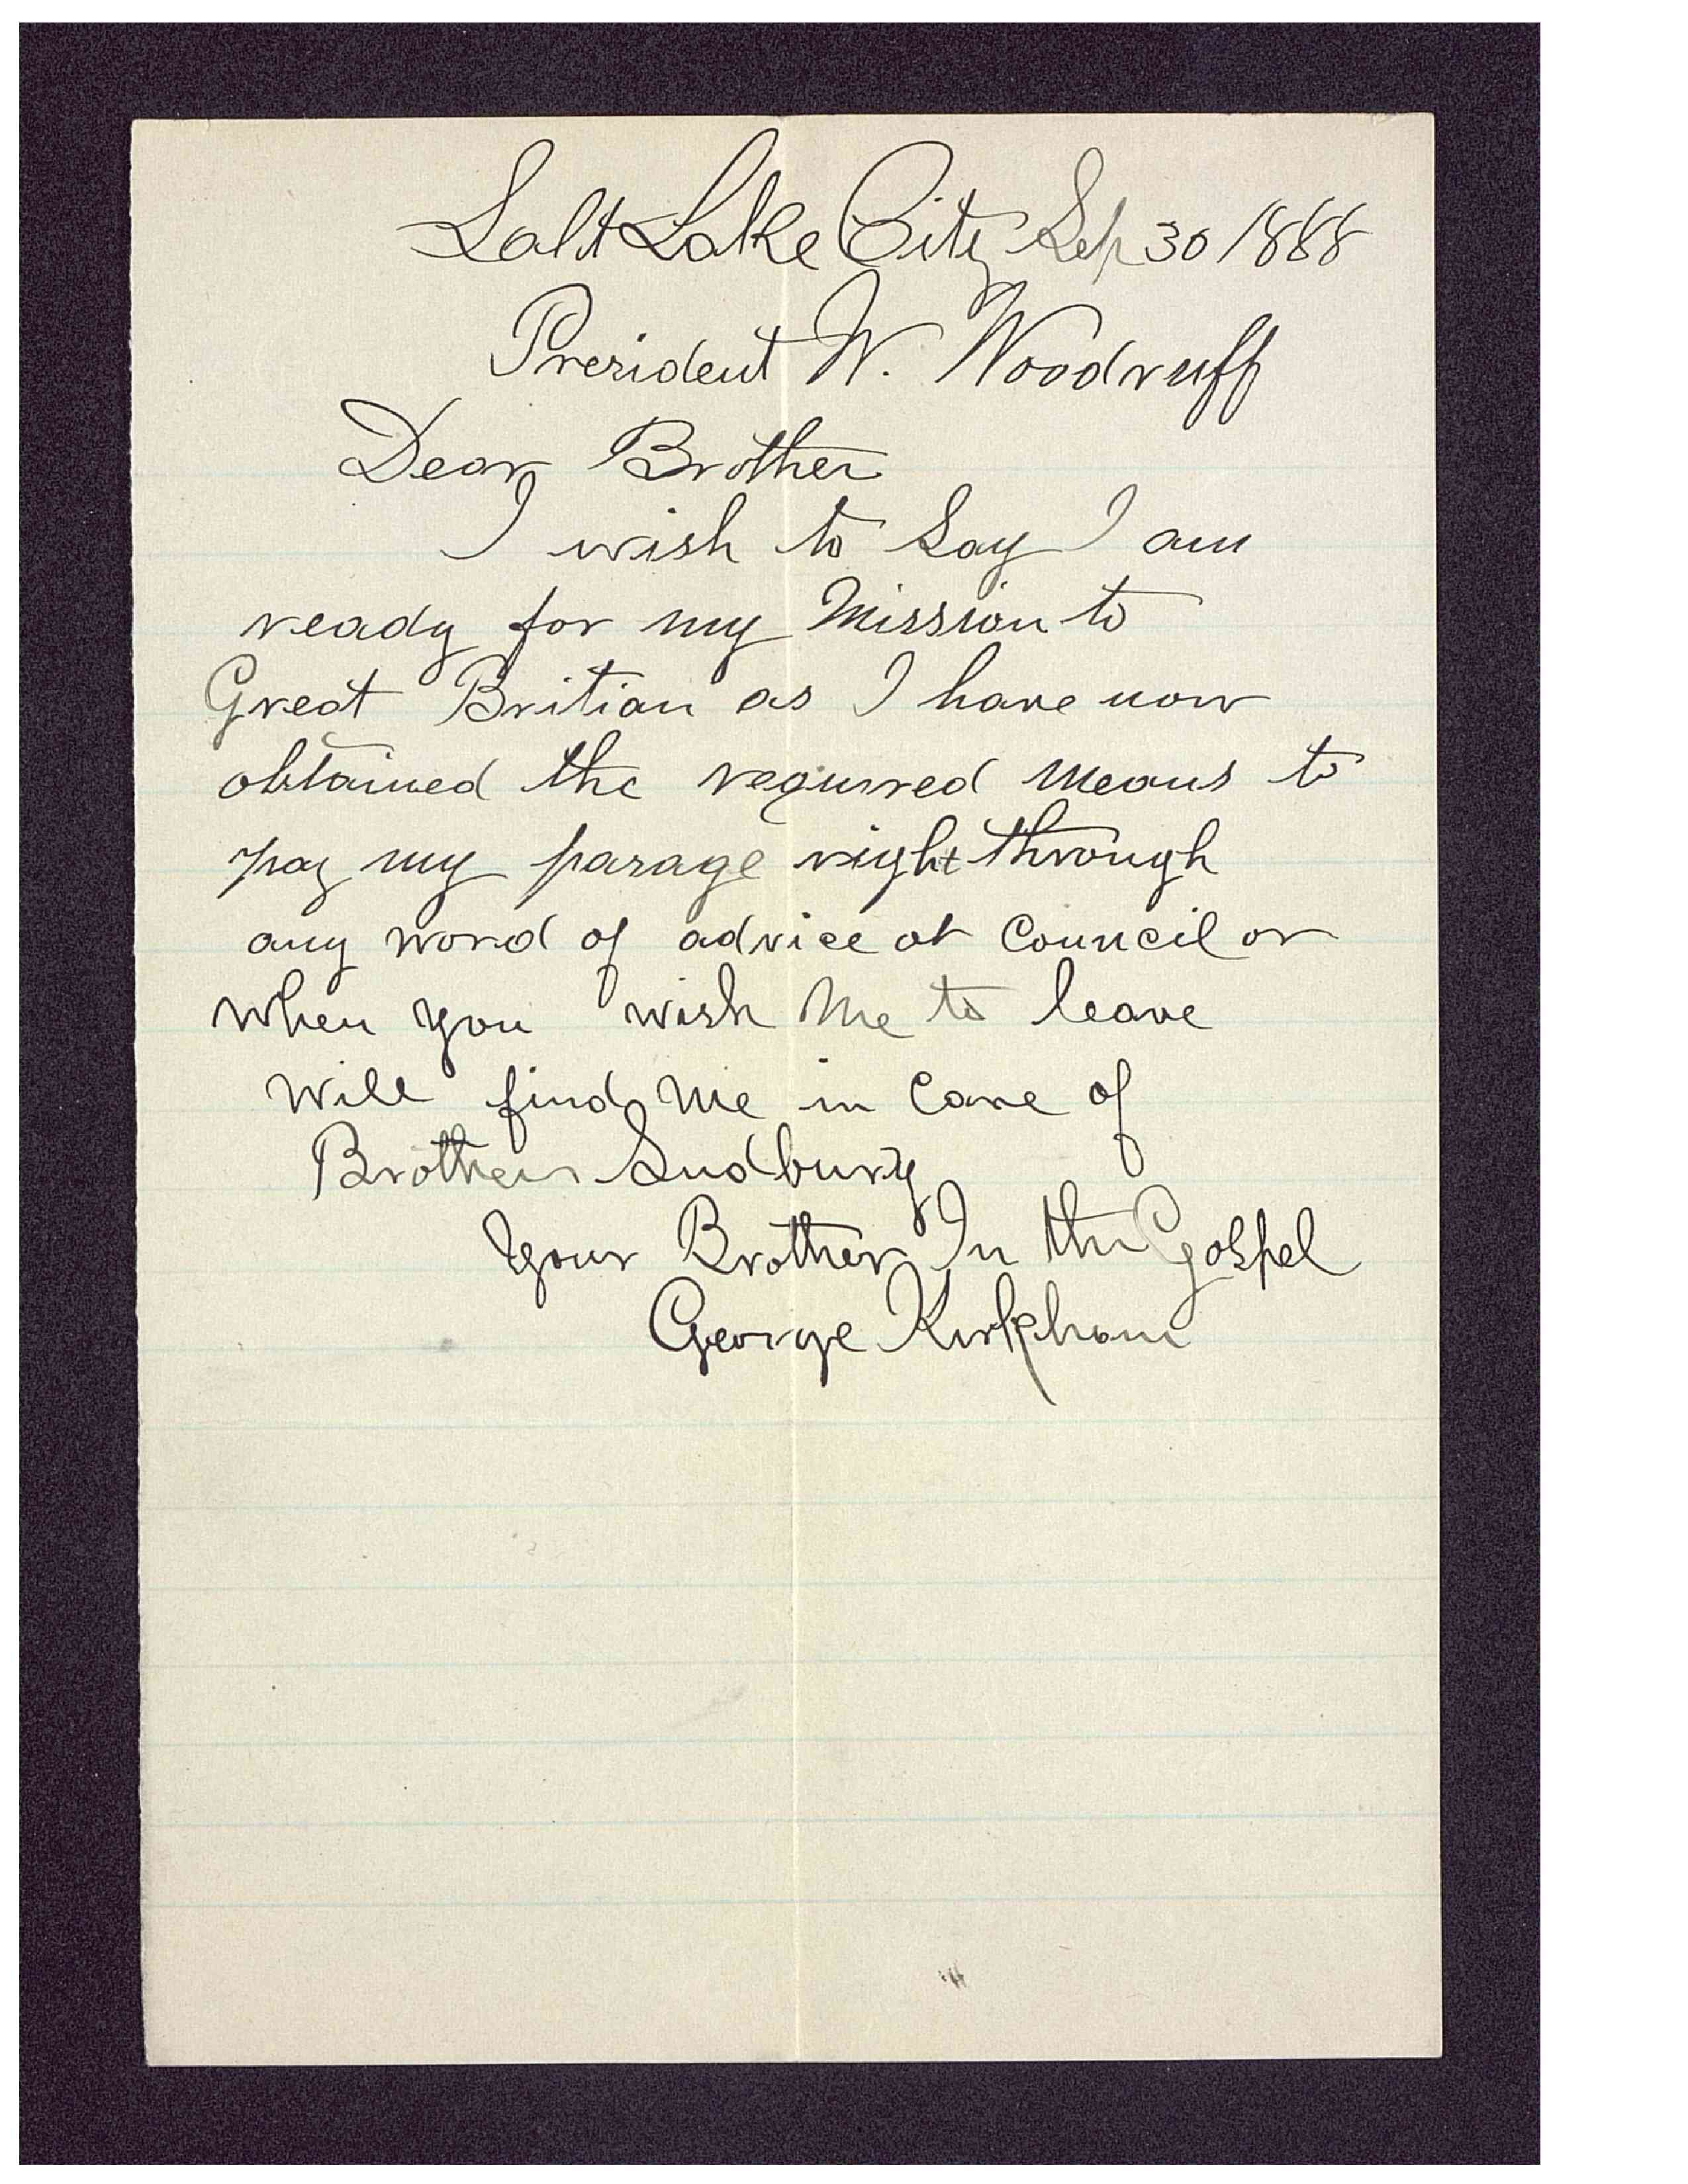 Salt Lake City Sep 30 1888
President W. Woodruff
Dear Brother
I wish to Say I am
ready for my Mission to
Great Britian as I have now
obtained the required means to
pay my pasage right through
any word of advice at Council or
when you wish me to leave
will find me in Care of
Brother Sudbury
Your Brother In the Gospel
George Kirkham